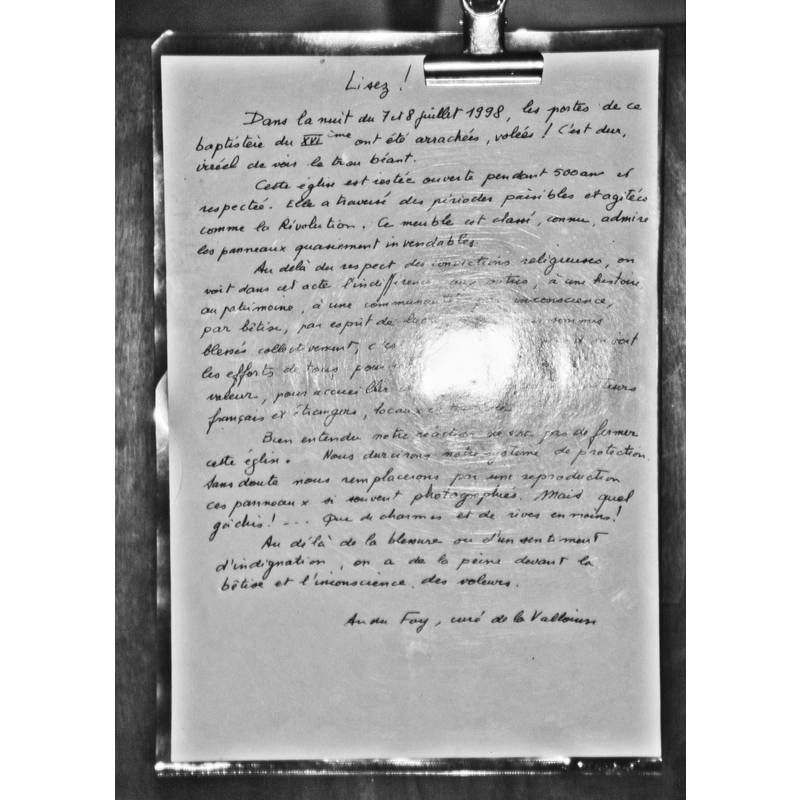 Lisez !
Dans la nuit du 7 et 8 juillet 1998, les portes de ce
baptistère du XVI ème ont été arrachées, volées ! C'est dur,
irréel de voir le trou béant.
Cette église est restée ouverte pendant 500 ans et
respectée. Elle a traversé des périodes paisibles et agitées
comme la Révolution. Ce meuble est classé, connu, admiré
les panneaux quasiment invendables.
Au délà du respect des convictions religieuses, on
voit dans cet acte l'indifférence aux autres, à une histoire
au patrimoine, à une communauté inconscience,
par bêtise, par esprit de sommes
blessés collectivement, c'es
les efforts de tous pour
valeur, pour accueillir
français et étrangers, locaux et
Bien entendu notre réaction ne sera pas de fermer
cette église. Nous durcirons notre système de protection.
Sans doute nous remplacerons par une reproduction
ces panneaux si souvent photographiés. Mais quel
gâchis ! ... Que de charmes et de rêves en moins !
Au délà de la blessure ou d'un sentiment
d'indignation, on a de la peine devant la
bêtise et l'inconscience des voleurs.
curé de la Vallouise